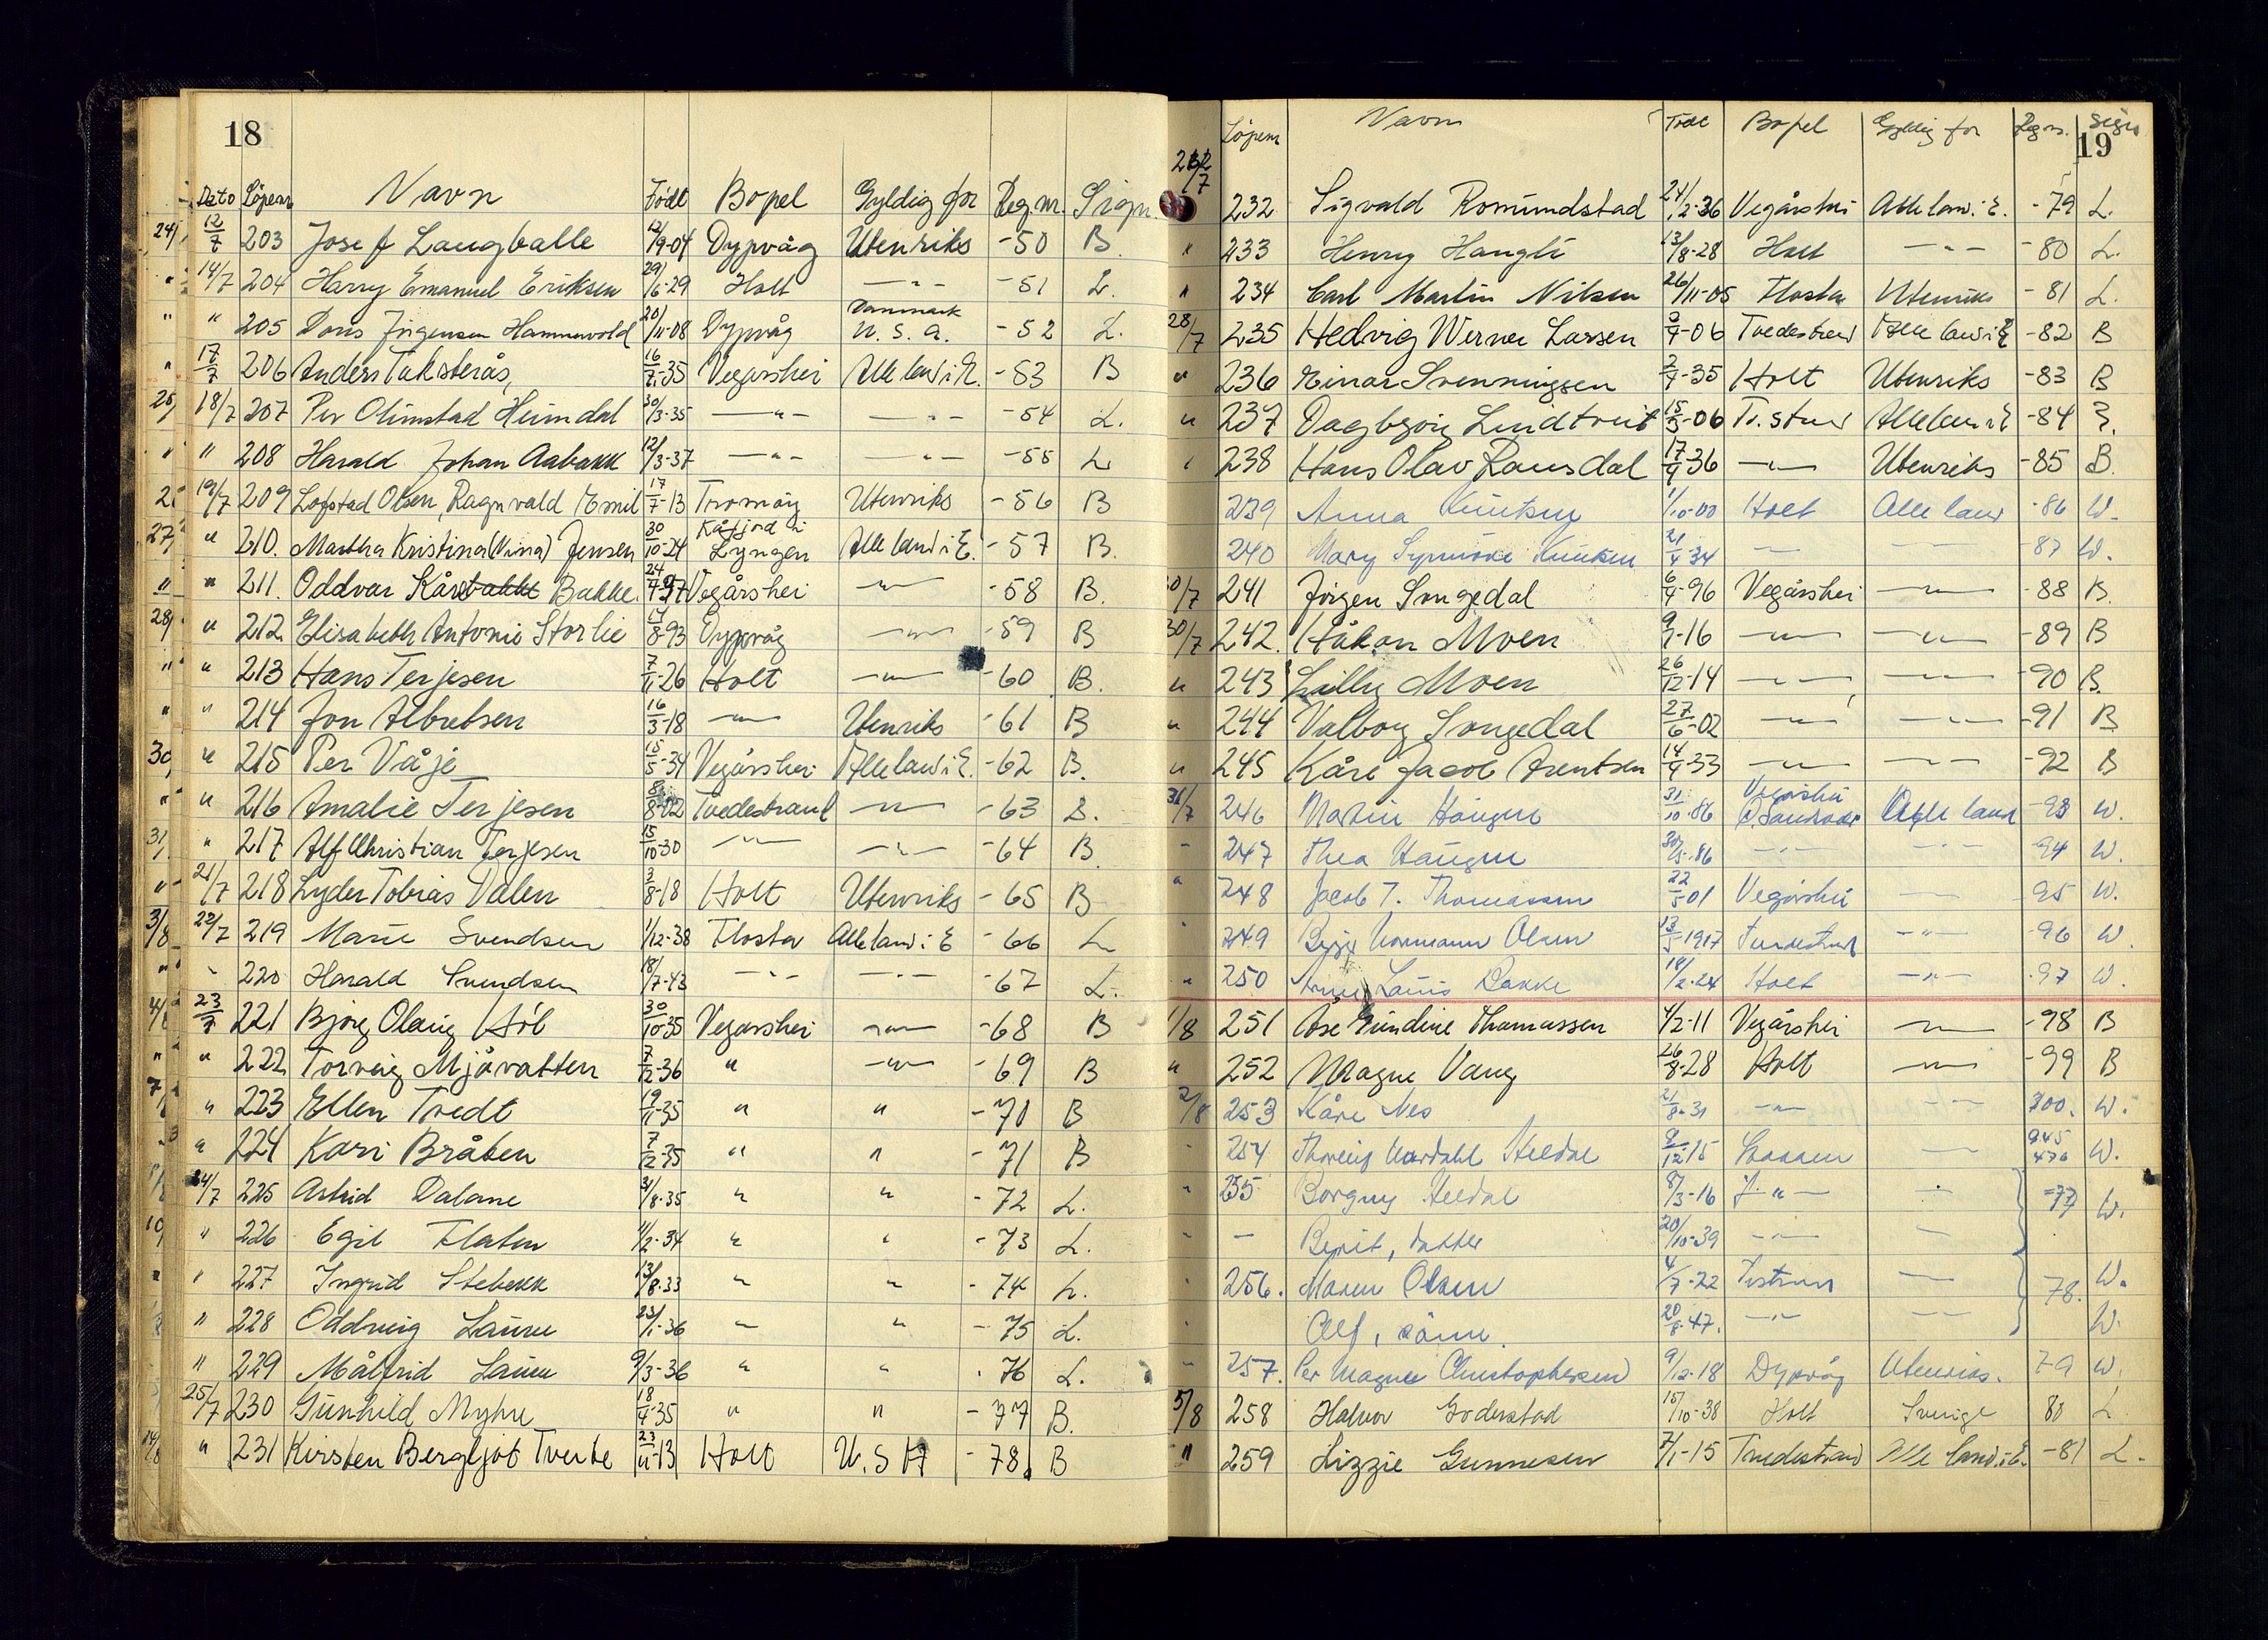 18
Dato Löpenr Navn Född Bopel Gyldig for Reg.nr. Sign.
12/7 203 Josef Laugballe 12/9-04 Dypvåg Utenriks -50 B
14/7 204 Harry Emanuel Eriksen 29/6-29 Holt —"— -51 L.
Danmark
" 205 Doris Jörgensen Hammervold 20/11-08 Dypvåg U.S.A. -52 L.
17/7 206 Anders Taksterås, 16/7-35 Vegårshei Alle land i E. -53 B
18/7 207 Per Olimstad Heimdal 30/3-35 —"— —"— -54 L.
" 208 Harald Johan Aabakk 12/3-37 —"— —"— -55 L
19/7 209 Lofstad Olsen, Ragnvald Emil 17/7-13 Tromøy Utenriks -56 B
Kåfjord i
" 210. Martha Kristina (Nina) Jensen 30/10-24 Lyngen Alle land i E. -57 B.
" 211. Oddvar Kåre Bakke 24/4-37 Vegårshei —"— -58 B.
" 212 Elisabeth Antonie Storlie /8-93 Dypvåg —"— -59 B
" 213 Hans Terjesen 7/11-26 Holt —"— -60 B.
" 214 Jon Albretsen 16/3-18 —"— Utenriks -61 B
" 215 Per Våje 15/5-34 Vegårshei Alle land i E. -62 B.
" 216 Amalie Terjesen 8/8-02 Tvedestrand —"— -63 B.
" 217 Alf Christian Terjesen 15/10-30 —"— —"— -64 B
21/7 218 Lyder Tobias Dalen 3/8-18 Holt Utenriks -65 B
22/7 219 Marie Svendsen 1/12-38 Flosta Alle land i E -66 L
" 220 Harald Svendsen 18/7-43 —"— —"— -67 L.
23/7 221 Bjørg Olaug Høl 30/10-35 Vegårshei —"— -68 B
" 222 Torveig Mjåvatten 7/12-36 " —"— -69 B
" 223 Ellen Tvedt 19/11-35 " " -70 B
" 224 Kari Bråten 7/12-35 " " -71 B
24/7 225 Astrid Dalane 31/8-35 " " -72 L.
" 226 Egil Flaten 11/2-34 " " -73 L.
" 227 Ingrid Stebekk 13/8-33 " " -74 L.
" 228 Oddveig Lauve 23/1-36 " " -75 L.
" 229 Målfrid Lauve 9/3-36 " " -76 L.
25/7 230 Gunhild Myhre 18/4-35 " " -77 B.
" 231 Kirsten Bergljot Tveite 23/11-13 Holt U.S.A -78 B
19
Löpenr Navn Född Bopel Gyldig for Reg.nr. Sign
232 Sigvald Romundstad 24/12-36 Vegårshei Alle land i E. -79 L.
" 233 Henry Haugli 13/8-28 Holt —"— -80 L.
" 234 Carl Martin Nilsen 26/11-05 Flosta Utenriks -81 L.
28/7 235 Hedvig Werner Larsen /4-06 Tvedestrand Alle land i E -82 B
" 236 Einar Svenningsen 2/7-35 Holt Utenriks -83 B
" 237 Dagbjørg Lindtveit 15/3-06 Tv.strand Alle land i E -84 B.
238 Hans Olav Ramsdal 17/4-36 —"— Utenriks -85 B.
239 Anna Knutsen 1/10-00 Holt Alle land -86 W.
240 Mary Synnøve Knutsen 21/4-34 — — -87 W.
30/7 241 Jörgen Songedal 6/4-96 Vegårshei —"— -88 B.
30/7 242. Håkon Moen 9/1-16 —"— —"— -89 B
" 243 Lilly Moen 26/12-14 —"— —"— -90 B.
" 244 Valborg Songedal 27/6-02 —"— —"— -91 B
" 245 Kåre Jacob Arentsen 14/4-33 —"— —"— -92 B
Vegårshei
31/7 246 Martin Haugen 31/10-86 Alle land -93 W.
247 Thea Haugen 30/5-86 —"— —"— -94 W.
" 248 Jacob T. Thomassen 22/5-01 Vegårshei — -95 W.
" 249 Normann Olsen 13/5-1917 Tvedestrand —"— -96 W.
" 250 Arne Lauis Bakke 18/2-24 Holt —"— -97 W.
1/8 251 Åse Gundine Thomassen 4/2-11 Vegårshei —"— -98 B
" 252 Magne Vang 26/8-28 Holt —"— -99 B
2/8 253 Kåre Nes 21/8-31 —"— — — 700. W.
" 254 Nordahl Heldal 9/12-15 — W.
" 255 Borgny Heldal 8/3-16 —"— -77 W.
" — Berit, datter 20/10-39 —"— —
" 256. Maren Olsen 4/7-22 Tv.strand — 78. W.
Alf, sönn. 20/8-47. —"— — — W.
" 257. Per Magne Christophersen 9/12-18 Dypvåg Utenriks. 79 W.
5/8 258 Halvor Goderstad 15/10-38 Holt Sverige 80 L
" 259 Lizzie Gunnesen 7/1-15 Tvedestrand Alle land i E. -81 L.